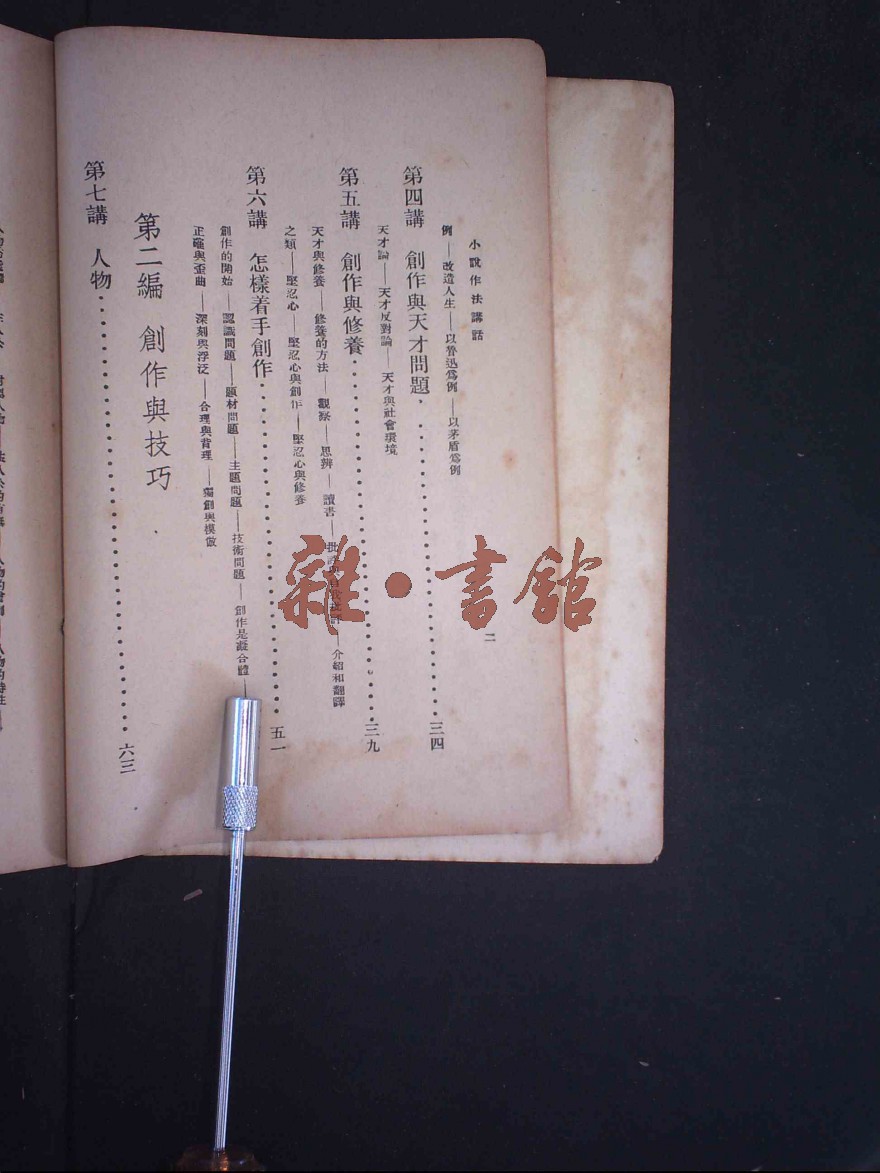 小說作法講話
二
例——改造人生——以魯迅爲例——以茅盾爲例
第四講 創作與天才問題・・・・・・・・・・・・・・・・・・・・三四
天才論——天才反對論——天才與社會環境
第五講 創作與修養・・・・・・・・・・・・・・・・・・・・三九
天才與修養——修養的方法——觀察——思辨——讀書——批評——介紹和翻譯
之類——堅忍心——堅忍心與創作——堅忍心與修養
第六講 怎樣着手創作・・・・・・・・・・・・・・・・・・・・五一
創作的開始——認識問題——題材問題——主題問題——技術問題——創作是凝合體——
正確與歪曲——深刻與浮泛——合理與背理——獨創與模倣
第二編 創作與技巧
第七講 人物・・・・・・・・・・・・・・・・・・・・六三
雜・書館